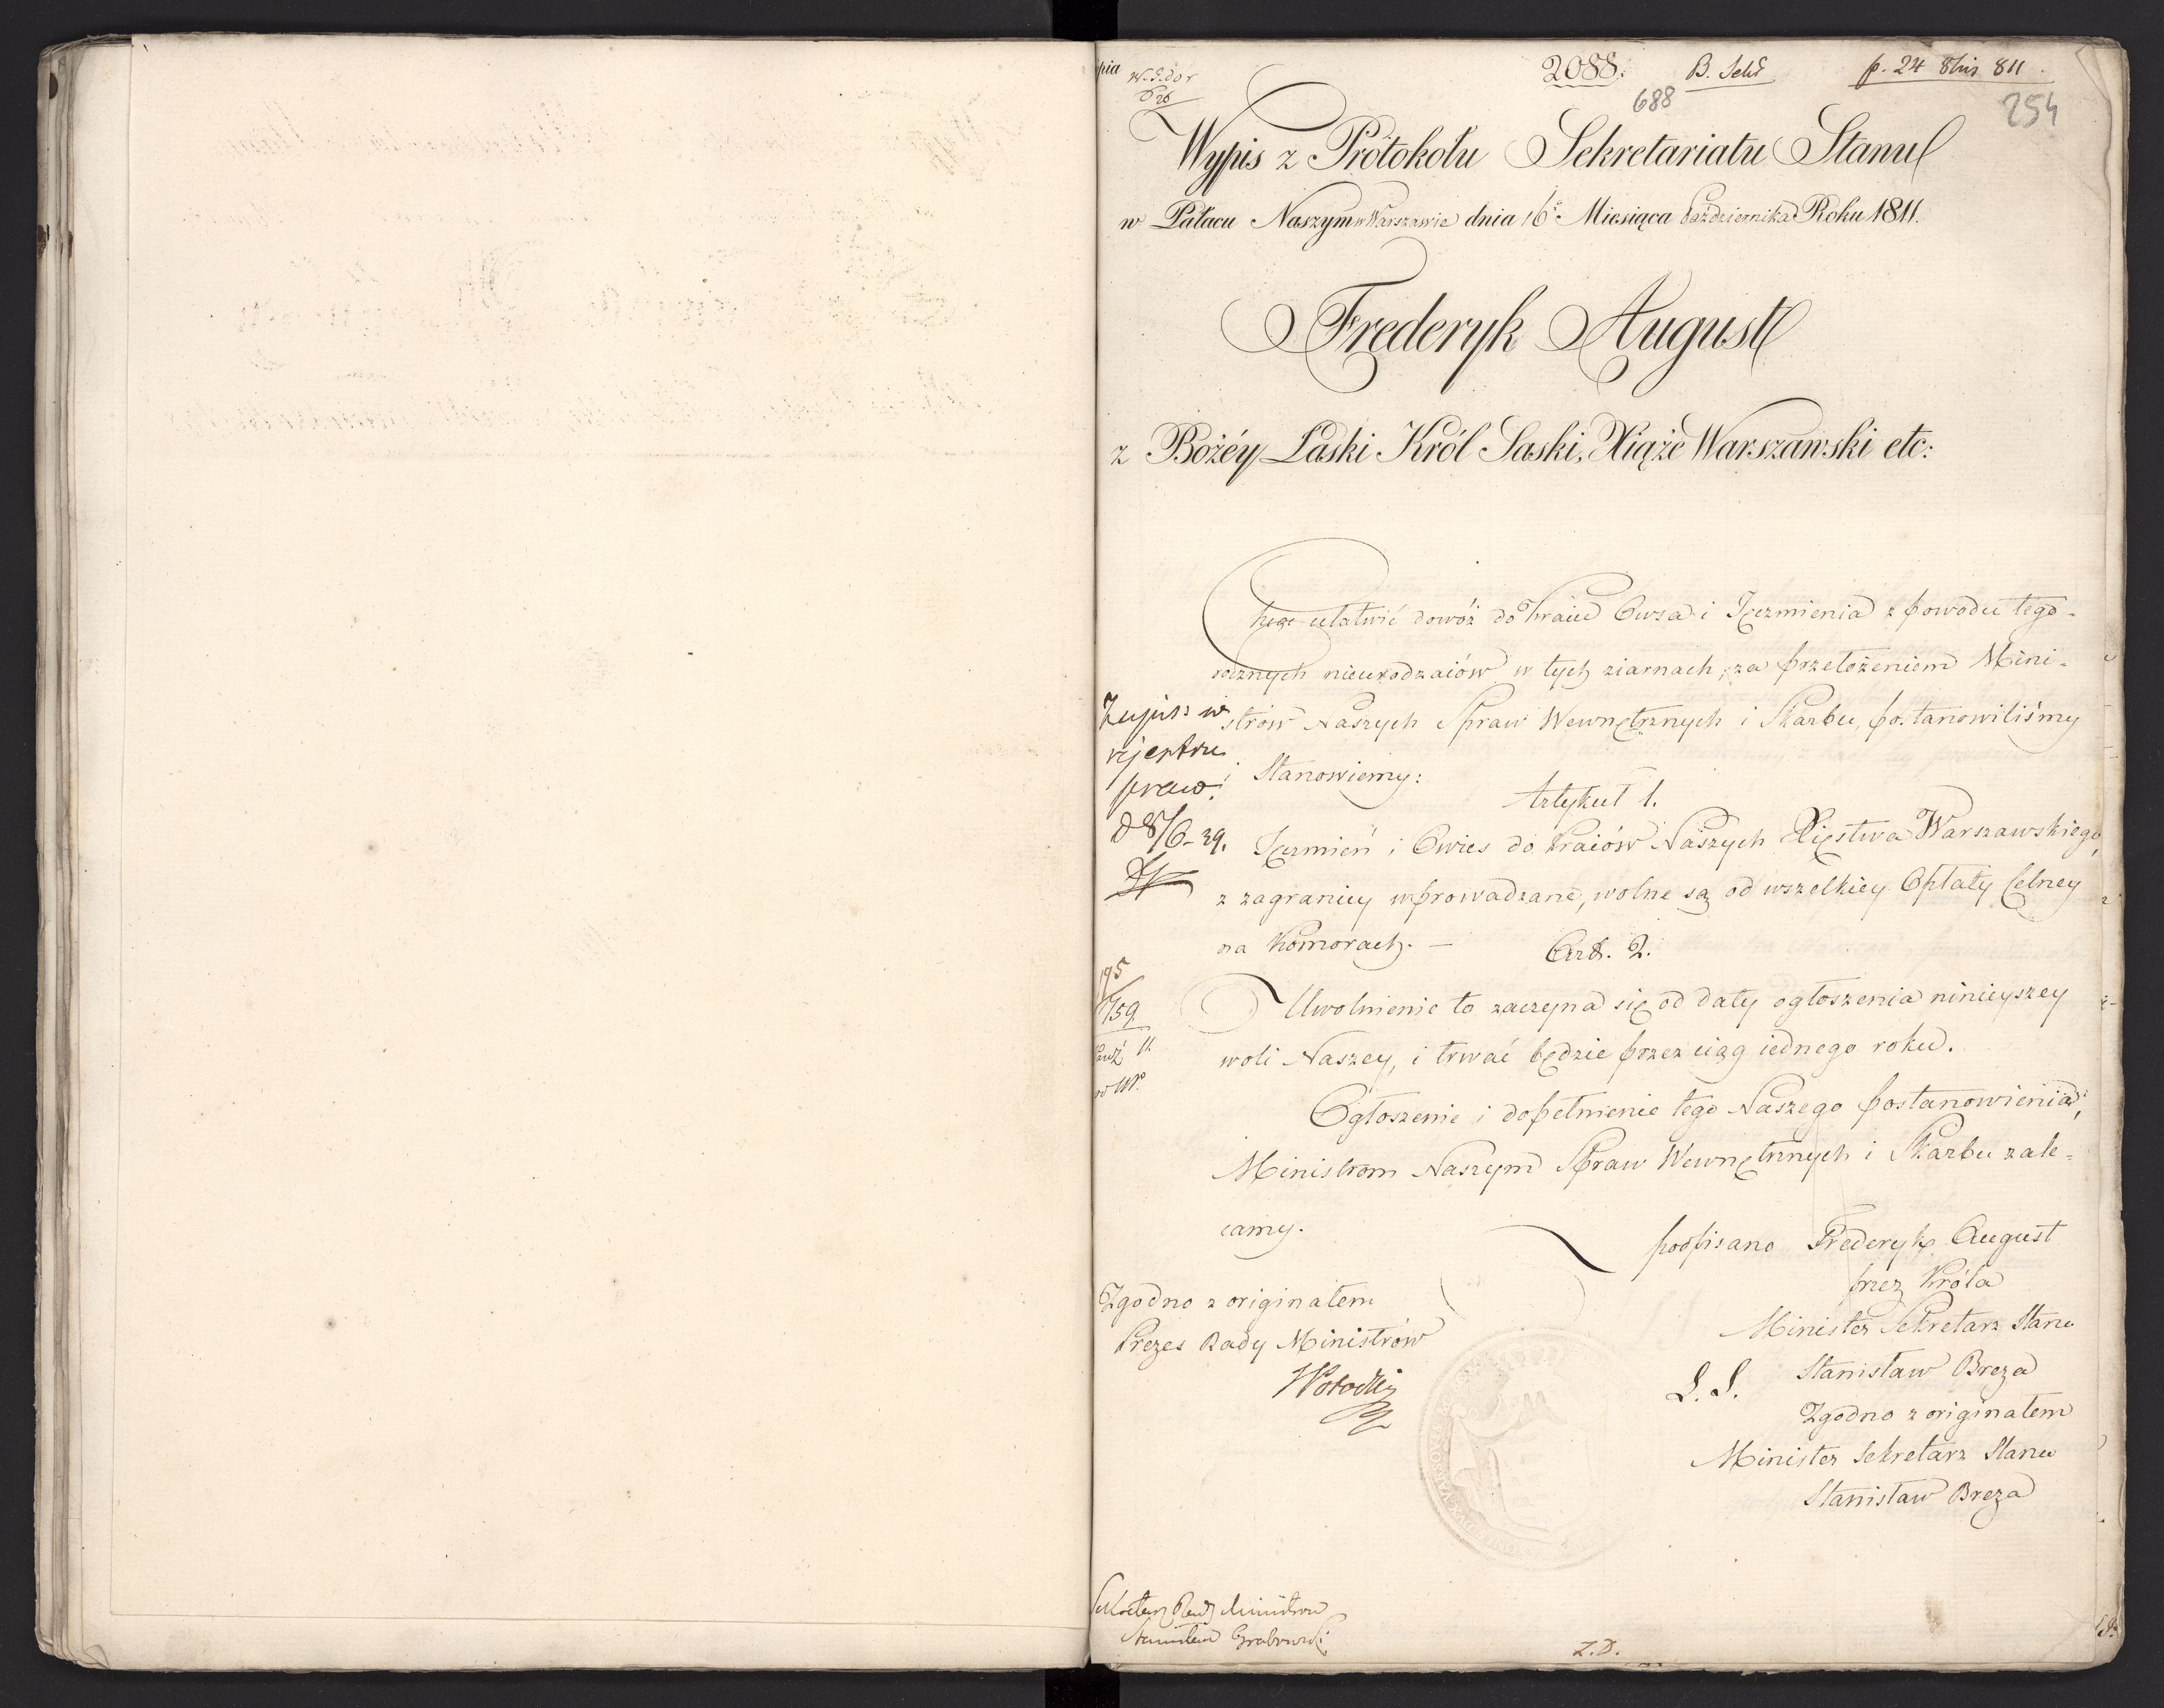 2088. B. Sekr p. 24 8bris 811
688
254
Wypis z Protokołu Sekretariatu Stanu
w Pałacu Naszym w Warszawie dnia 16º Miesiąca Października Roku 1811.
Frederyk August
z Bożéy Łaski Król Saski, Xiąże Warszawski etc:
Chcąc ułatwić dowóz do kraiu Owsa i Ięczmienia z powodu tego-
rocznych nieurodzaiów w tych ziarnach, za przełożeniem Mini-
strów Naszych Spraw Wewnętrznych i Skarbu, postanowiliśmy
i Stanowiemy:
Artykuł 1.
Ięczmień i Owies do kraiów Naszych Xięstwa Warszawskiego,
z zagranicy wprowadzane, wolne są od wszelkiey Opłaty Celney
na Komorach. —
Art. 2.
Uwolnienie to zaczyna się od daty ogłoszenia ninieyszey
woli Naszey, i trwać będzie przez ciąg iednego roku.
Ogłoszenie i dopełnienie tego Naszego postanowienia,
Ministrom Naszym Spraw Wewnętrznych i Skarbu zale-
camy.
podpisano Frederyk August
przez Króla
Minister Sekretarz Stanu
L. S. Stanisław Breza
Zgodno z originałem
Minister Sekretarz Stanu
Stanisław Breza
Zgodno z originałem
Prezes Rady Ministrów
Sekretarz Rady Ministrów
Stanisław Grabowski